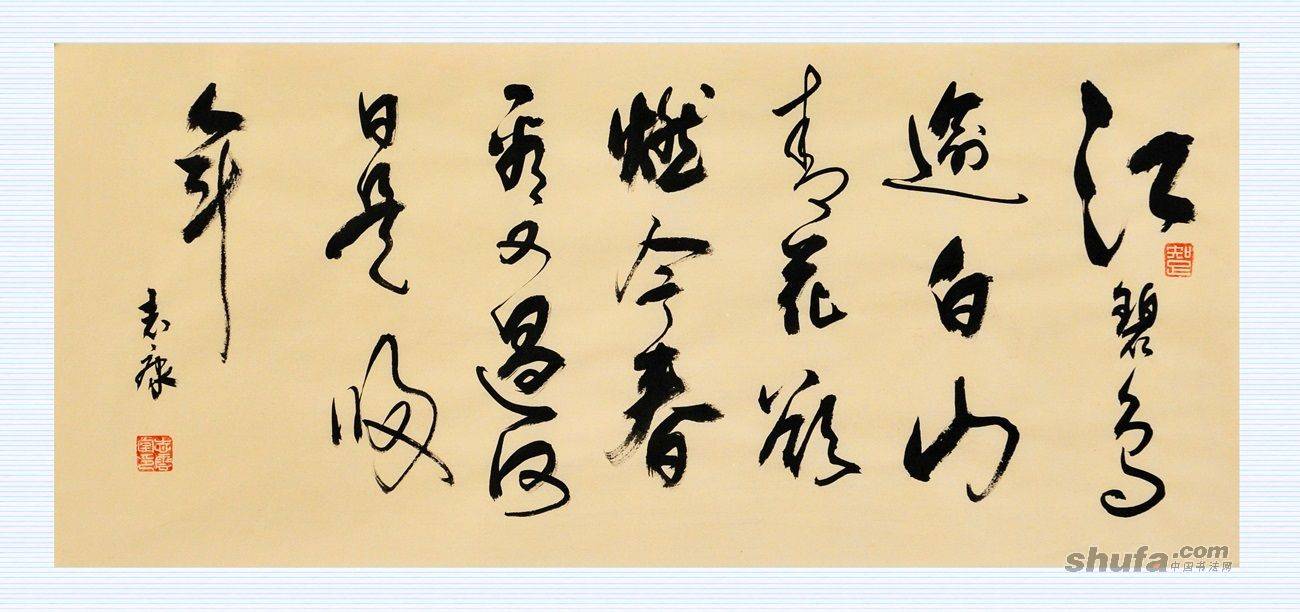 江碧鳥
逾白山
青花欲
燃今春
看又過何
日是歸
年
shufa.com
中国书法网